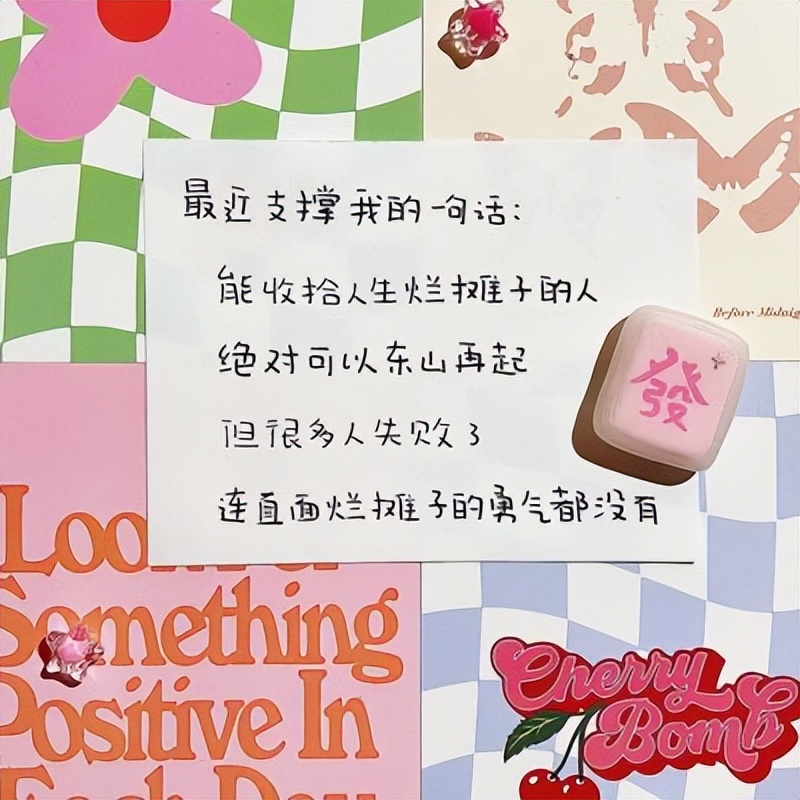 最近支撑我的一句话：
能收拾人生烂摊子的人
绝对可以东山再起
但很多人失败了
连直面烂摊子的勇气都没有
發
Before
Something
Positive In
Cherry
Bomb